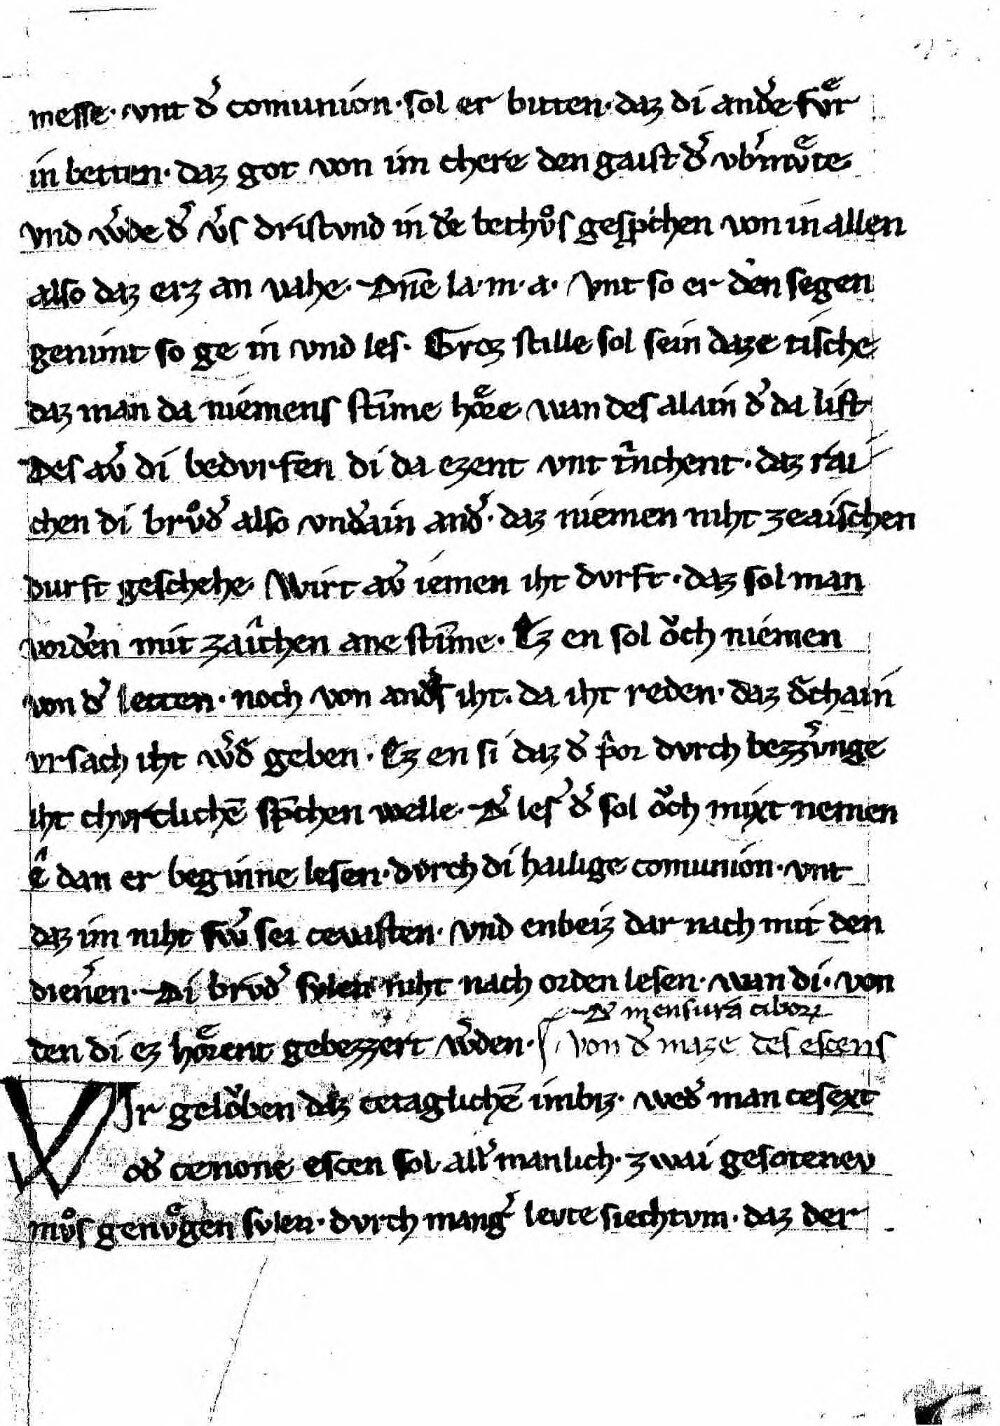 messe· vnt dˀ comunion· sol er bitten· daz di andˀe fvͤr
in betten· daz got von im chere den gaist dˀ vbˀmvͤte
vnd wˀde dˀ vˀs dristvnd in dˀe bethvͦs gesp̄chen von in allen
also daz erz an vahe· Dn̄e la· m· a· Vnt so er den segen
genimt so ge in vnd les· Groz stille sol sein daze tische
daz man da niemens stīme hoͤre wan des alain dˀ da list
Des avˀ di bedvrfen di da ezent vnt tˀnchent· daz rai
chen di brvͦdˀ also vndˀain andˀ· daz niemen niht zeaischen
durft geschehe· Wirt avˀ iemen iht dvrft· daz sol man
vordˀen mit zaîchen ane stīme· Ez en sol oͮch niemen
von dˀ letten· noch von andˀs iht· da iht reden· daz dˀchain
vrsach iht wˀdˀ geben· Ez en si daz dˀ pˀor dvrch bezzˀvnge
iht chvrtlichē sp̄chen welle· Dˀ lesˀ dˀ sol oͮch mixt nemen
ê dan er beginne lesen· dvrch di hailige comunion· vnt
daz im niht swˀ sei cevasten· Vnd enbeiz dar nach mit den
dienˀen· Di brvdˀ svlen niht nach orden lesen· wan di· von
Dˀ mensura ciboꝝ
den di ez hoͤrent gebezzert wˀden· von dˀ maze des escens
WJr geloͮben daz cetaglichē imbiz· wedˀ man cesext
odˀ cenone escen sol allˀ manlich· zwai gesotenev
mvͦs genvͤgen svlen· dvrch mangˀ levte siechtvm· daz der